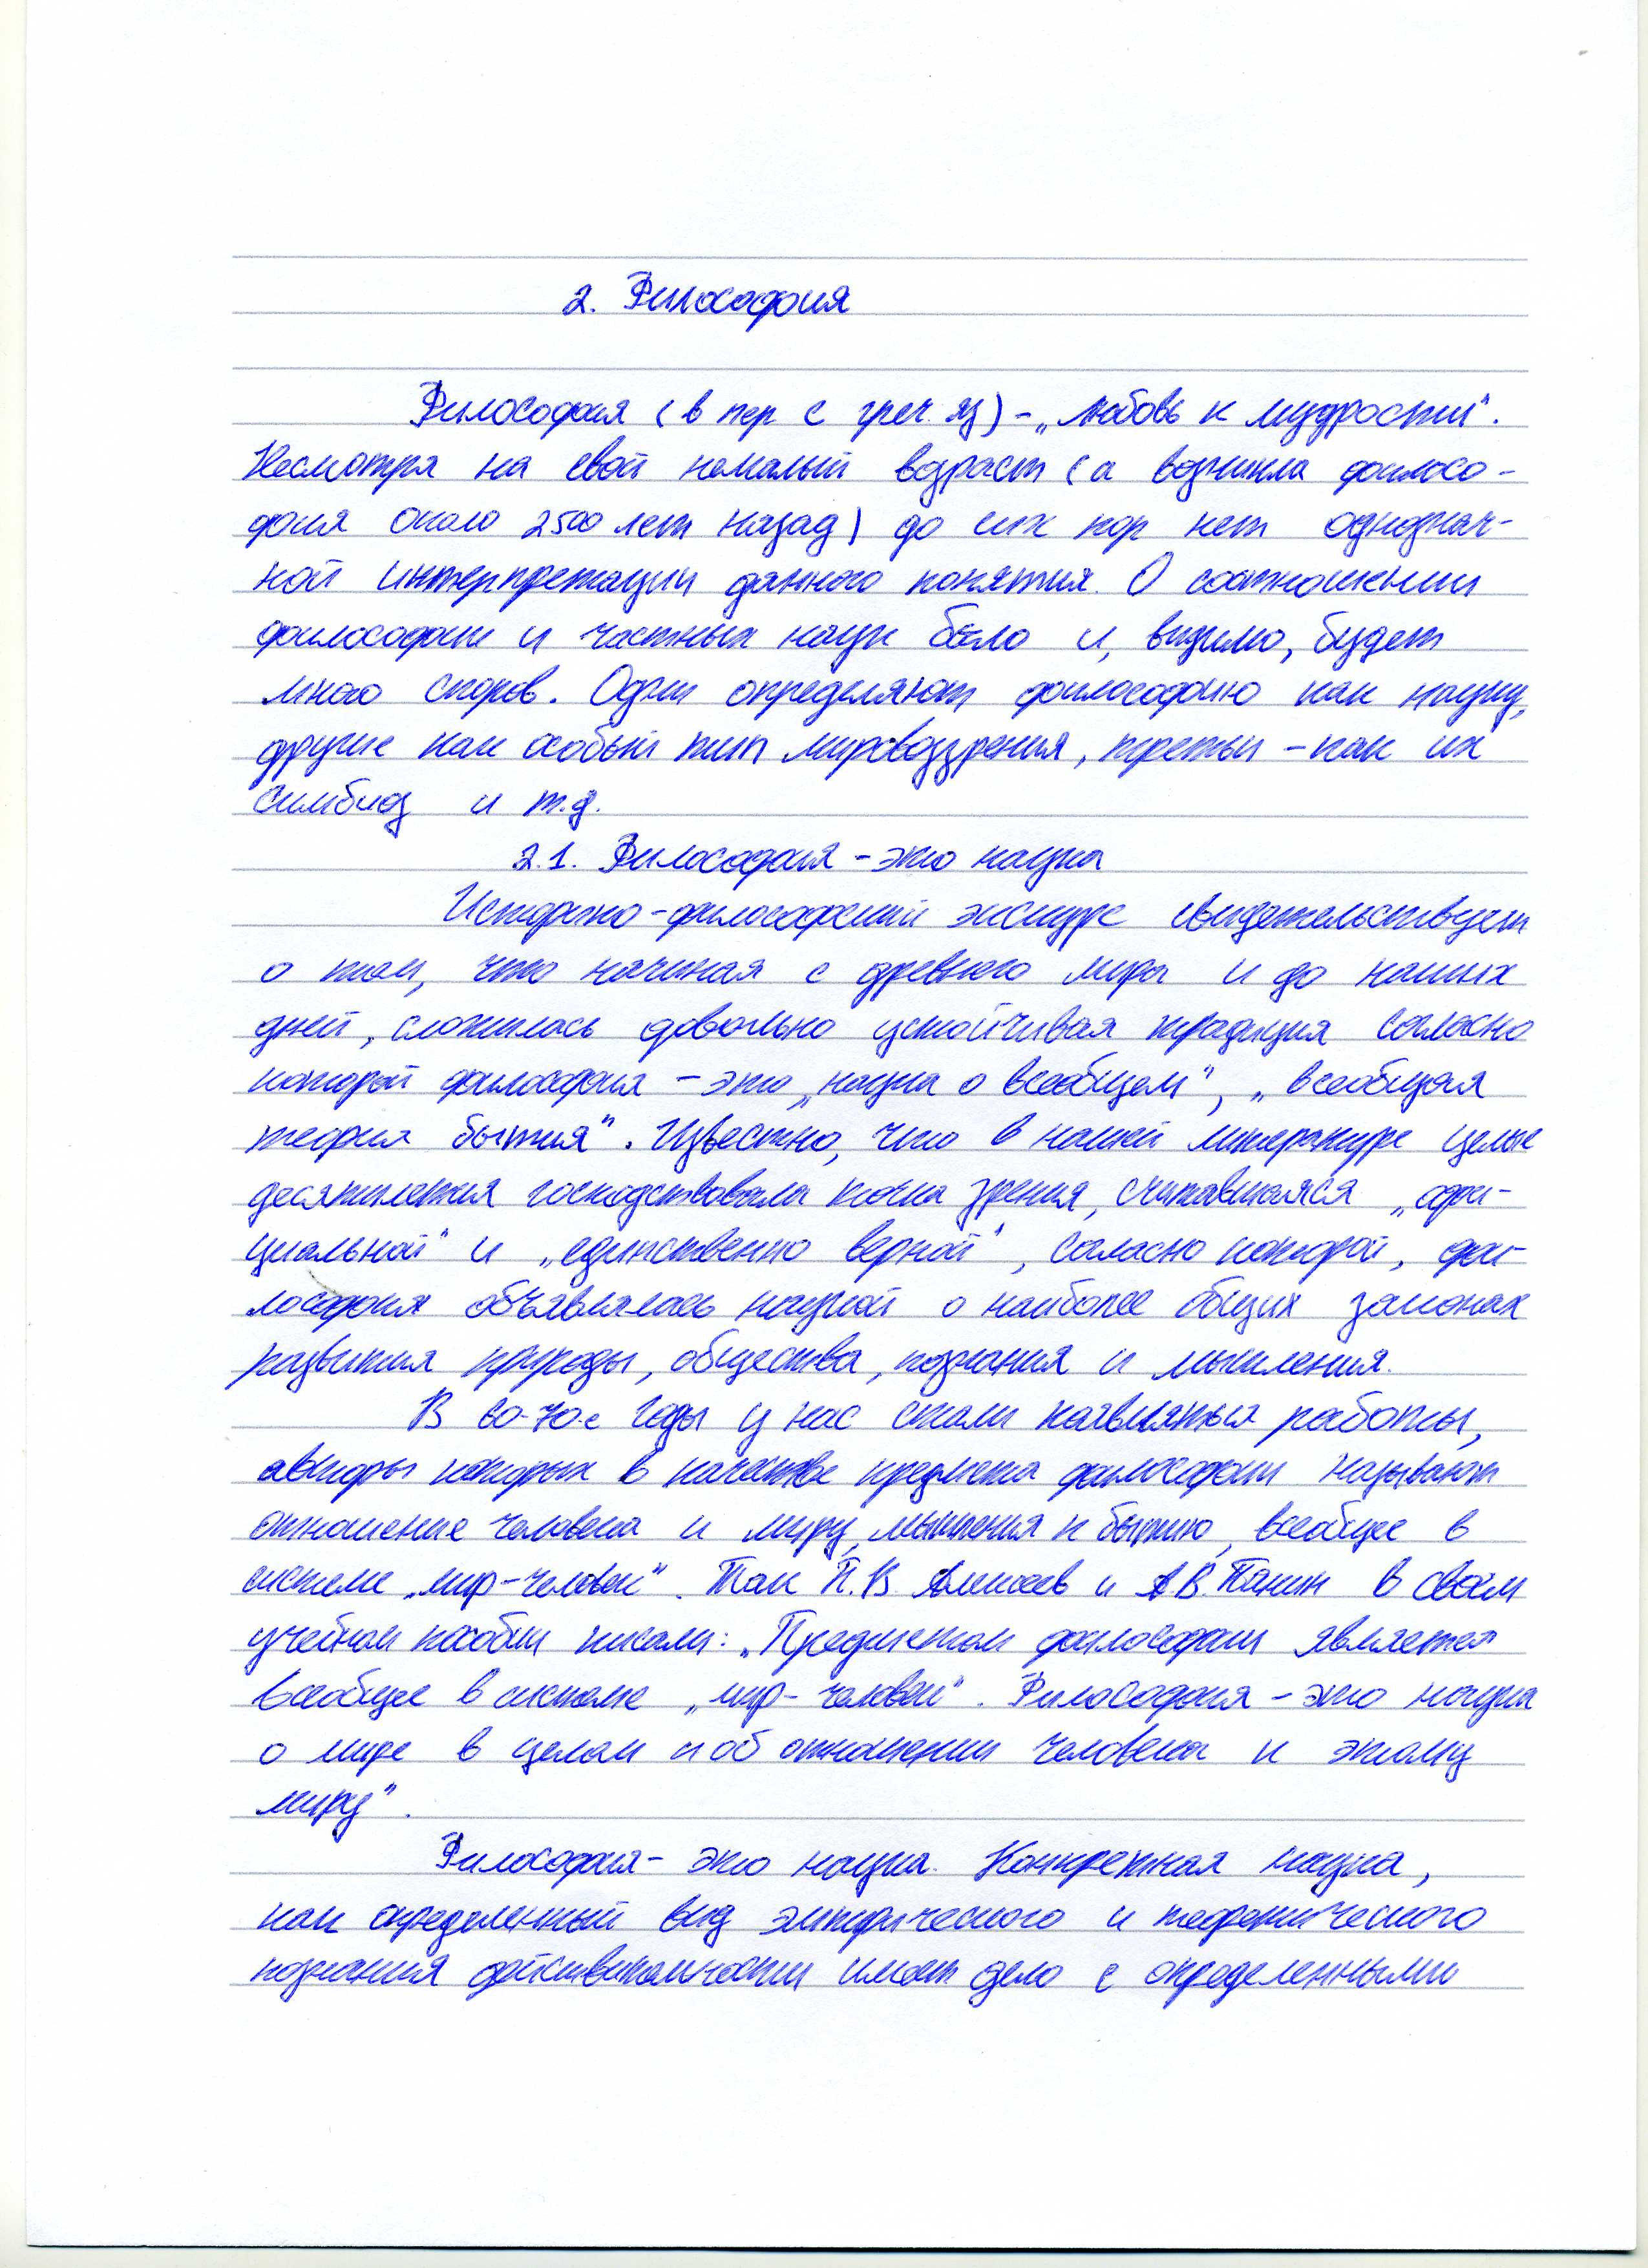 2. Философия
Философия (в пер с греч. яз) – „любовь к мудрости".
Несмотря на свой немалый возраст (а возникла филосо-
фия около 2500 лет назад) до сих пор нет однознач-
ной интерпретации данного понятия. О соотношении
философии и частных наук было и, видимо, будет
много споров. Одни определяют философию как науку,
другие как особый тип мировоззрения, третьи – как их
симбиоз и т.д.
2.1. Философия – это наука
Историко-философский экскурс свидетельствует
о том, что начиная с древнего мира и до наших
дней, сложилась довольно устойчивая традиция согласно
которой философия – это „наука о всеобщем", „всеобщая
теория бытия". Известно, что в нашей литературе целые
десятилетия господствовала точка зрения, считавшаяся „офи-
циальной" и „единственно верной", согласно которой, фи-
лософия объявлялась наукой о наиболее общих законах
развития природы, общества, познания и мышления.
В 60-70-е годы у нас стали появляться работы,
авторы которых в качестве предмета философии называют
отношение человека и миру, мышления к бытию, всеобщее в
системе „мир-человек". Так П.В. Алексеев и А.В. Панин в своем
учебном пособии писали: „Предметом философии является
всеобщее в системе „мир-человек". Философия – это наука
о мире в целом и об отношении человека к этому
миру".
Философия – это наука. Конкретная наука,
как определенный вид эмпирического и теоретического
познания действительности имеет дело с определенными